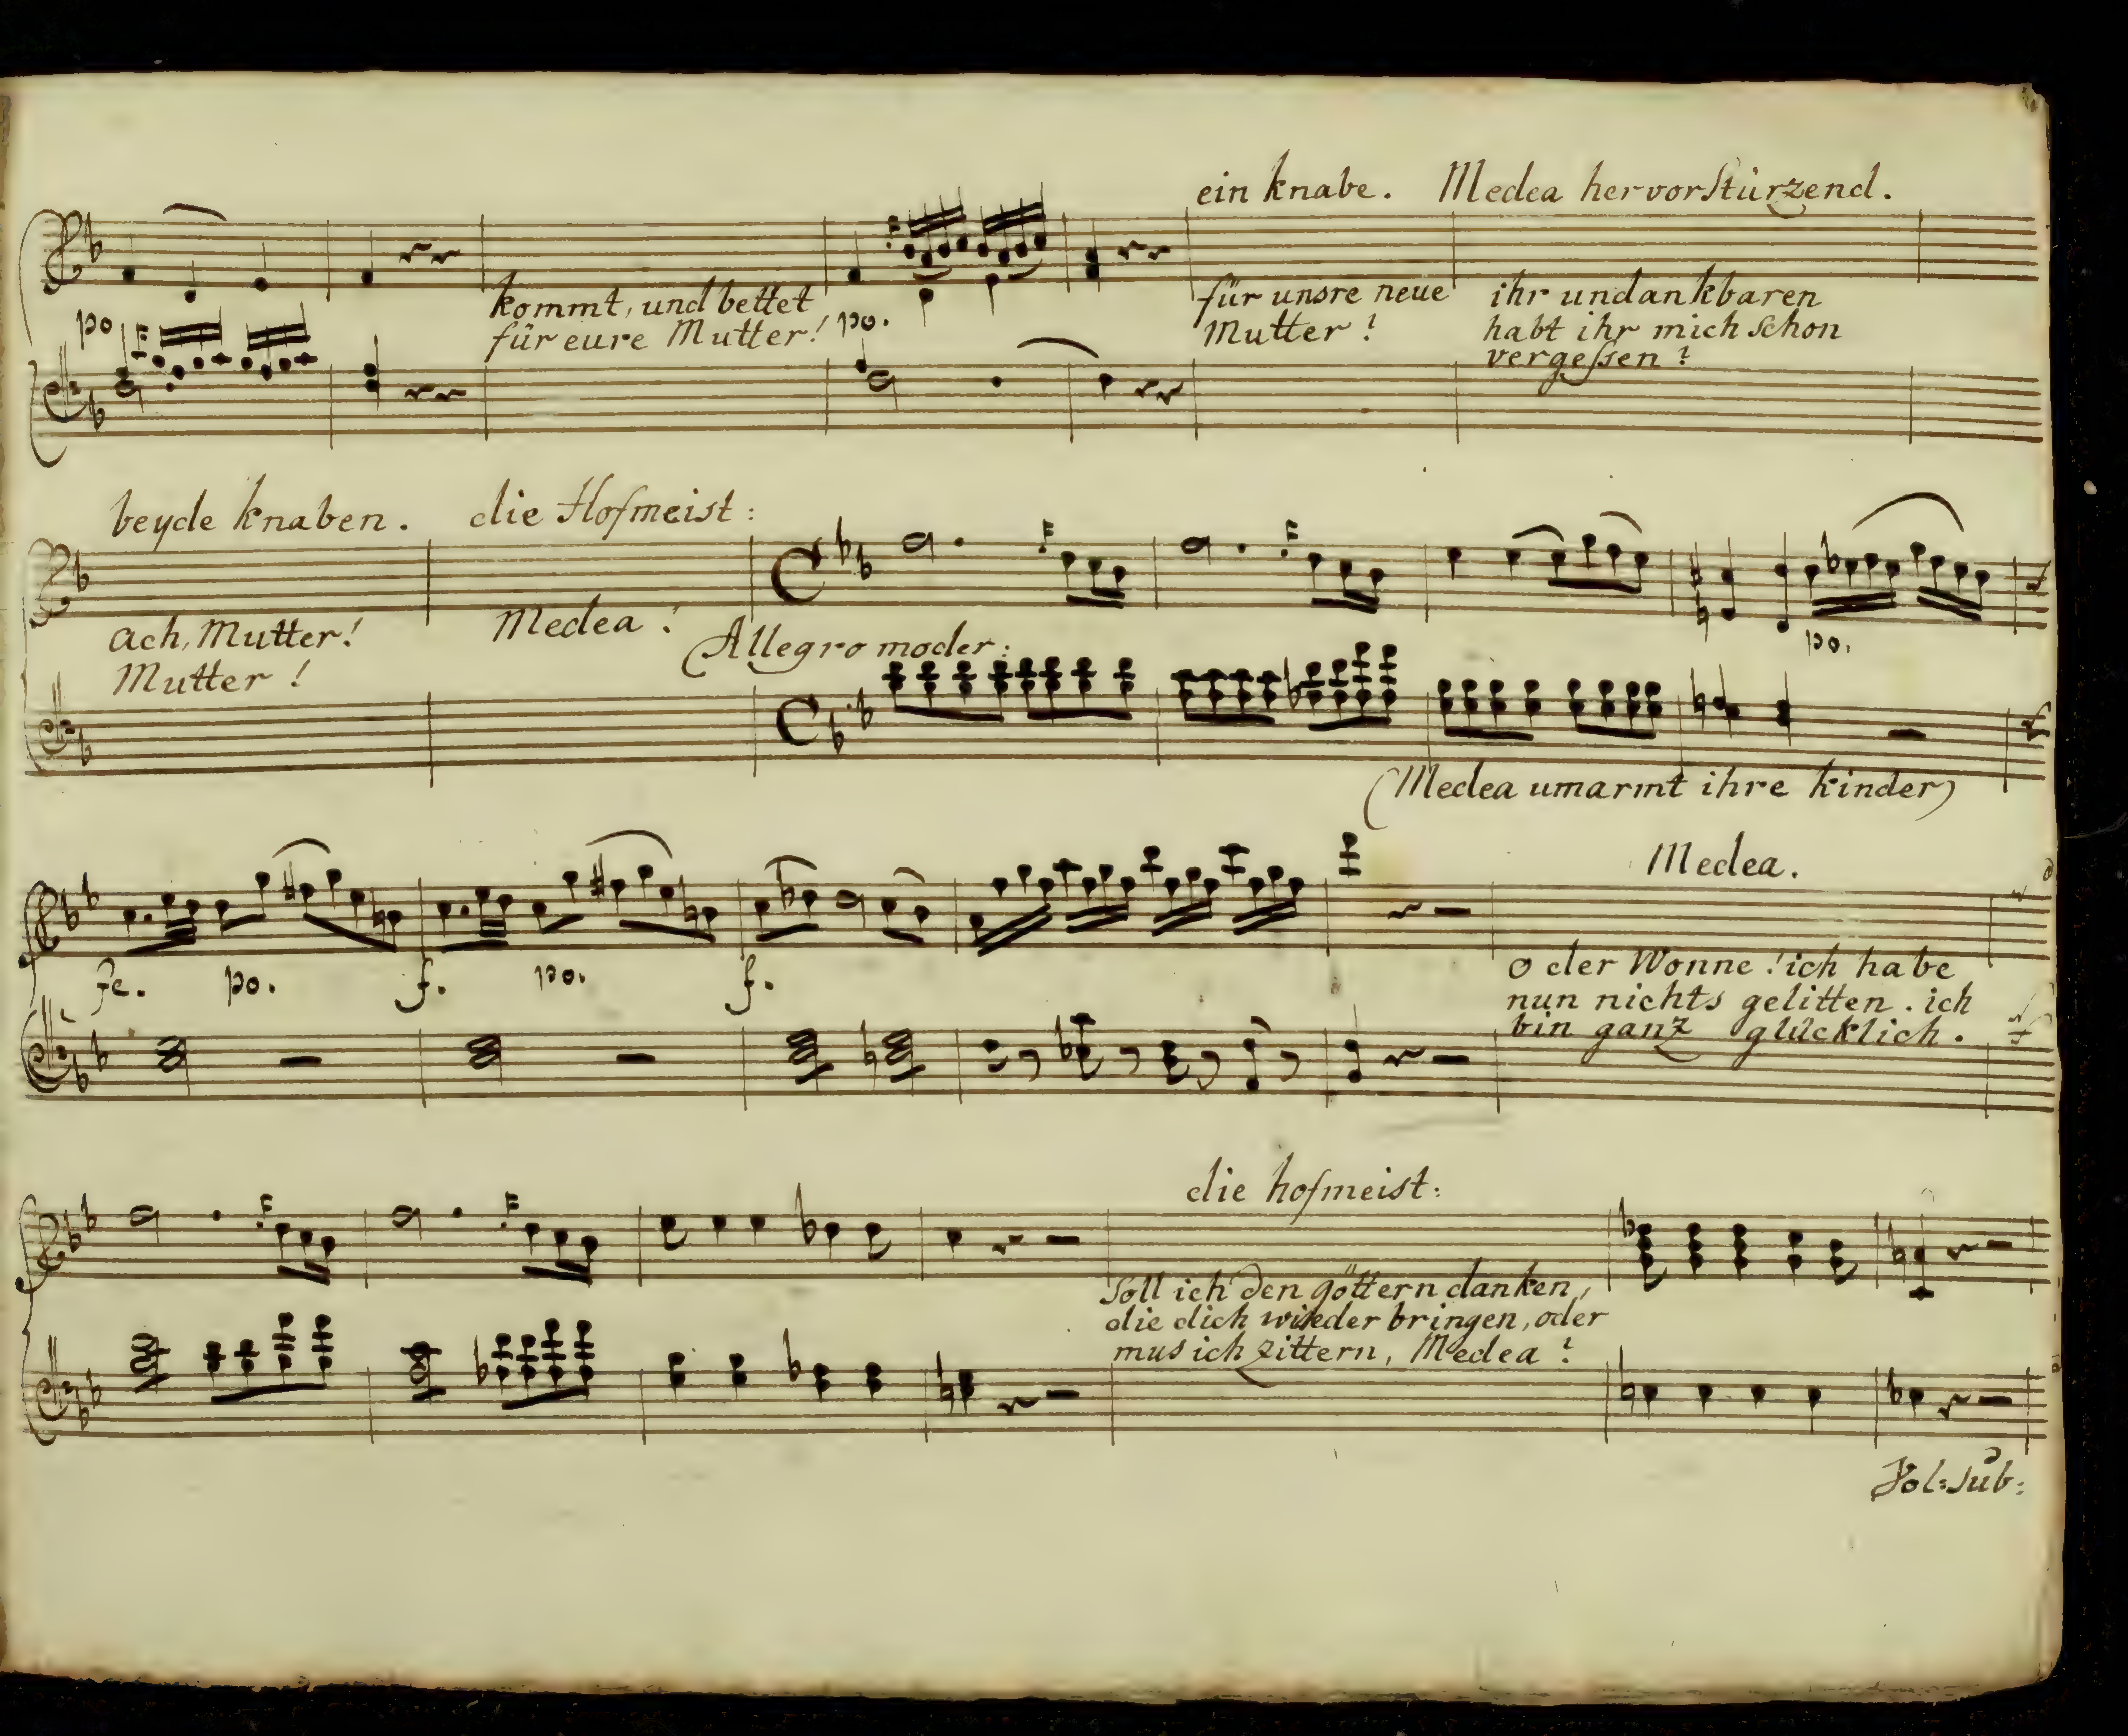 ein knabe. Medea hervorstürzend.
po
kommt, und bettet
für eure Mutter!
po.
für unsre neue
Mutter?
ihr undankbaren
habt ihr mich schon
vergessen?
beyde knaben. die Hofmeist:
ach, Mutter!
Mutter!
Medea!
Allegro moder:
po.
(Medea umarmt ihre kinder)
Medea.
fe. po. f. po. f.
o der Wonne! ich habe
nun nichts gelitten. ich
bin ganz glücklich.
die hofmeist:
soll ich den göttern danken,
die dich wieder bringen, oder
mus ich zittern, Medea?
Vol: sub: